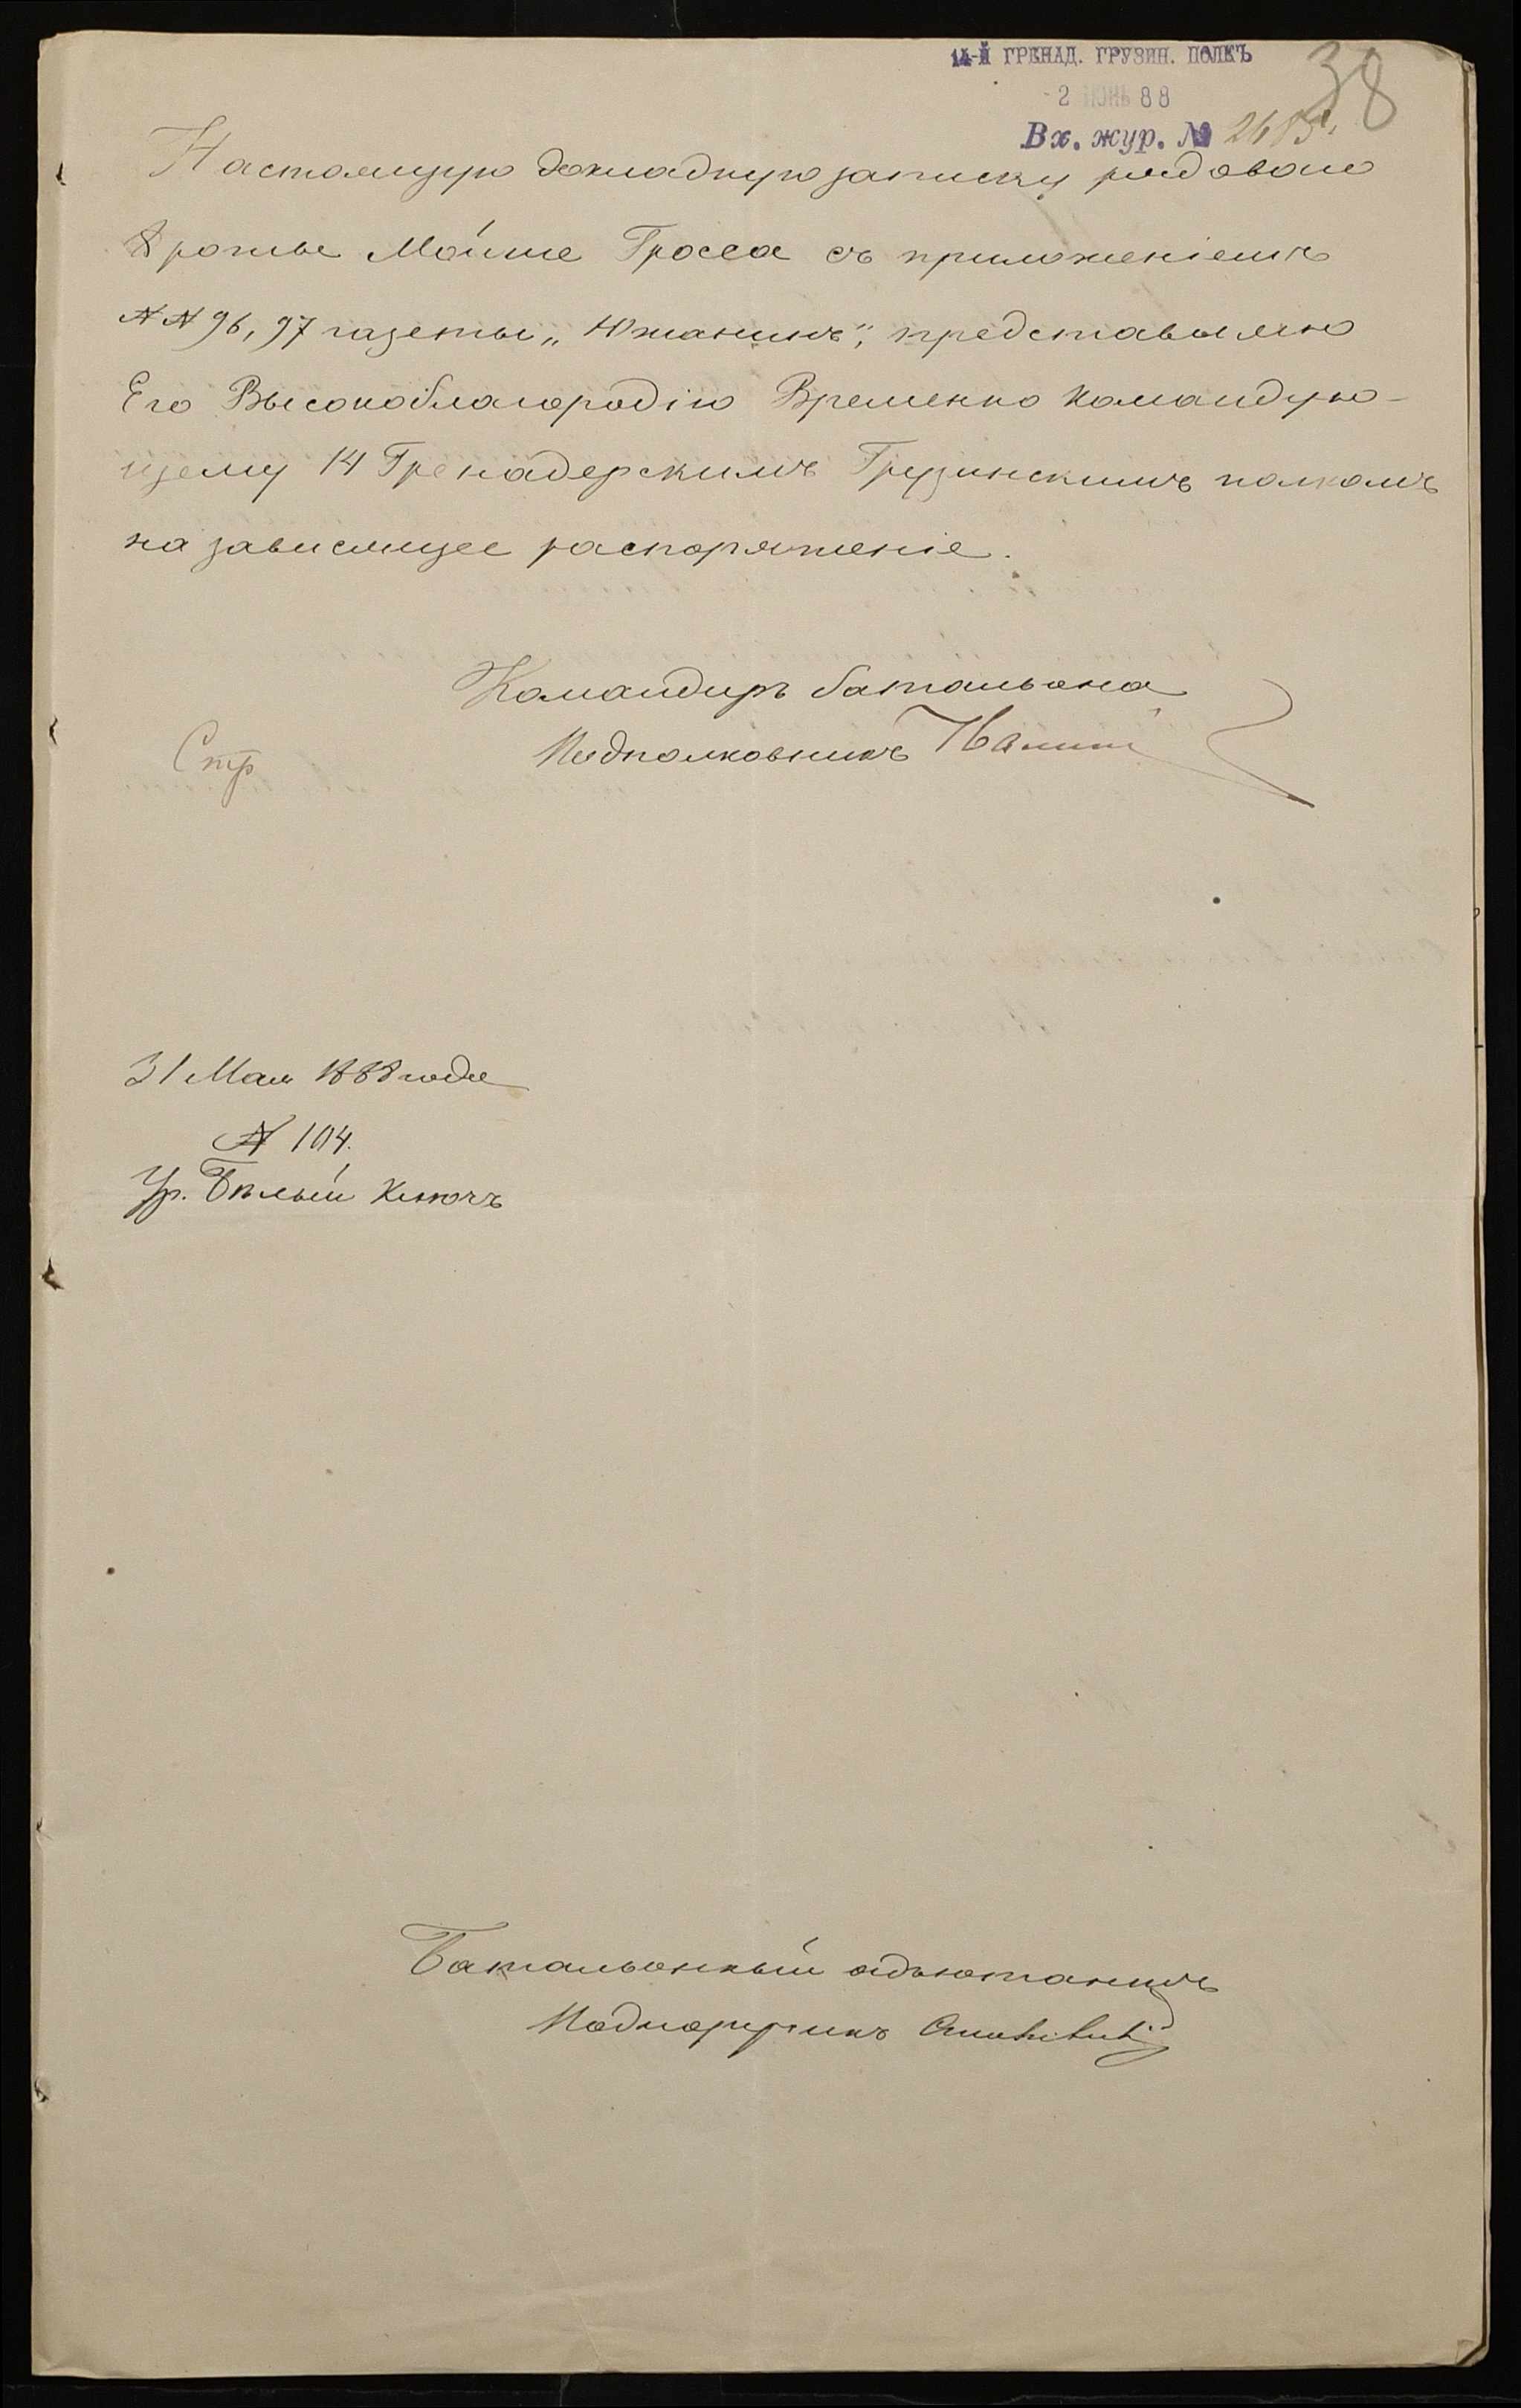 14-Й ГРЕНАД. ГРУЗИН. ПОЛКЪ
38
2 ІЮНЬ 88
Вх. жур. №
Настоящую докладную записку рядоваго
Мойше Гросса съ приложеніемъ
№№ 96, 97 газеты „Южанинъ", представляю
Его Высокоблагородію Временно командую-
щему 14 Гренадерскимъ Грузинскимъ полкомъ
на зависящее распоряженіе.
Командиръ батальона
Подполковникъ
Стр
31 Мая 1888 года
№ 104.
Ур. Бѣлый Ключъ
Батальонный адъютантъ
Подпоручикъ